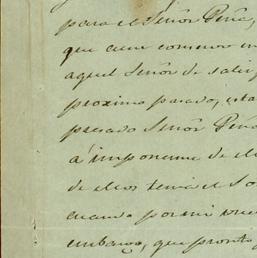 para el Señor Peña,
que aun conservo en
aquel Señor de salir
proximo pasado, esta
presado Señor Peñ
á imponerme de el
de ellos tenia el So
cuando por mi
embargo, que pronto